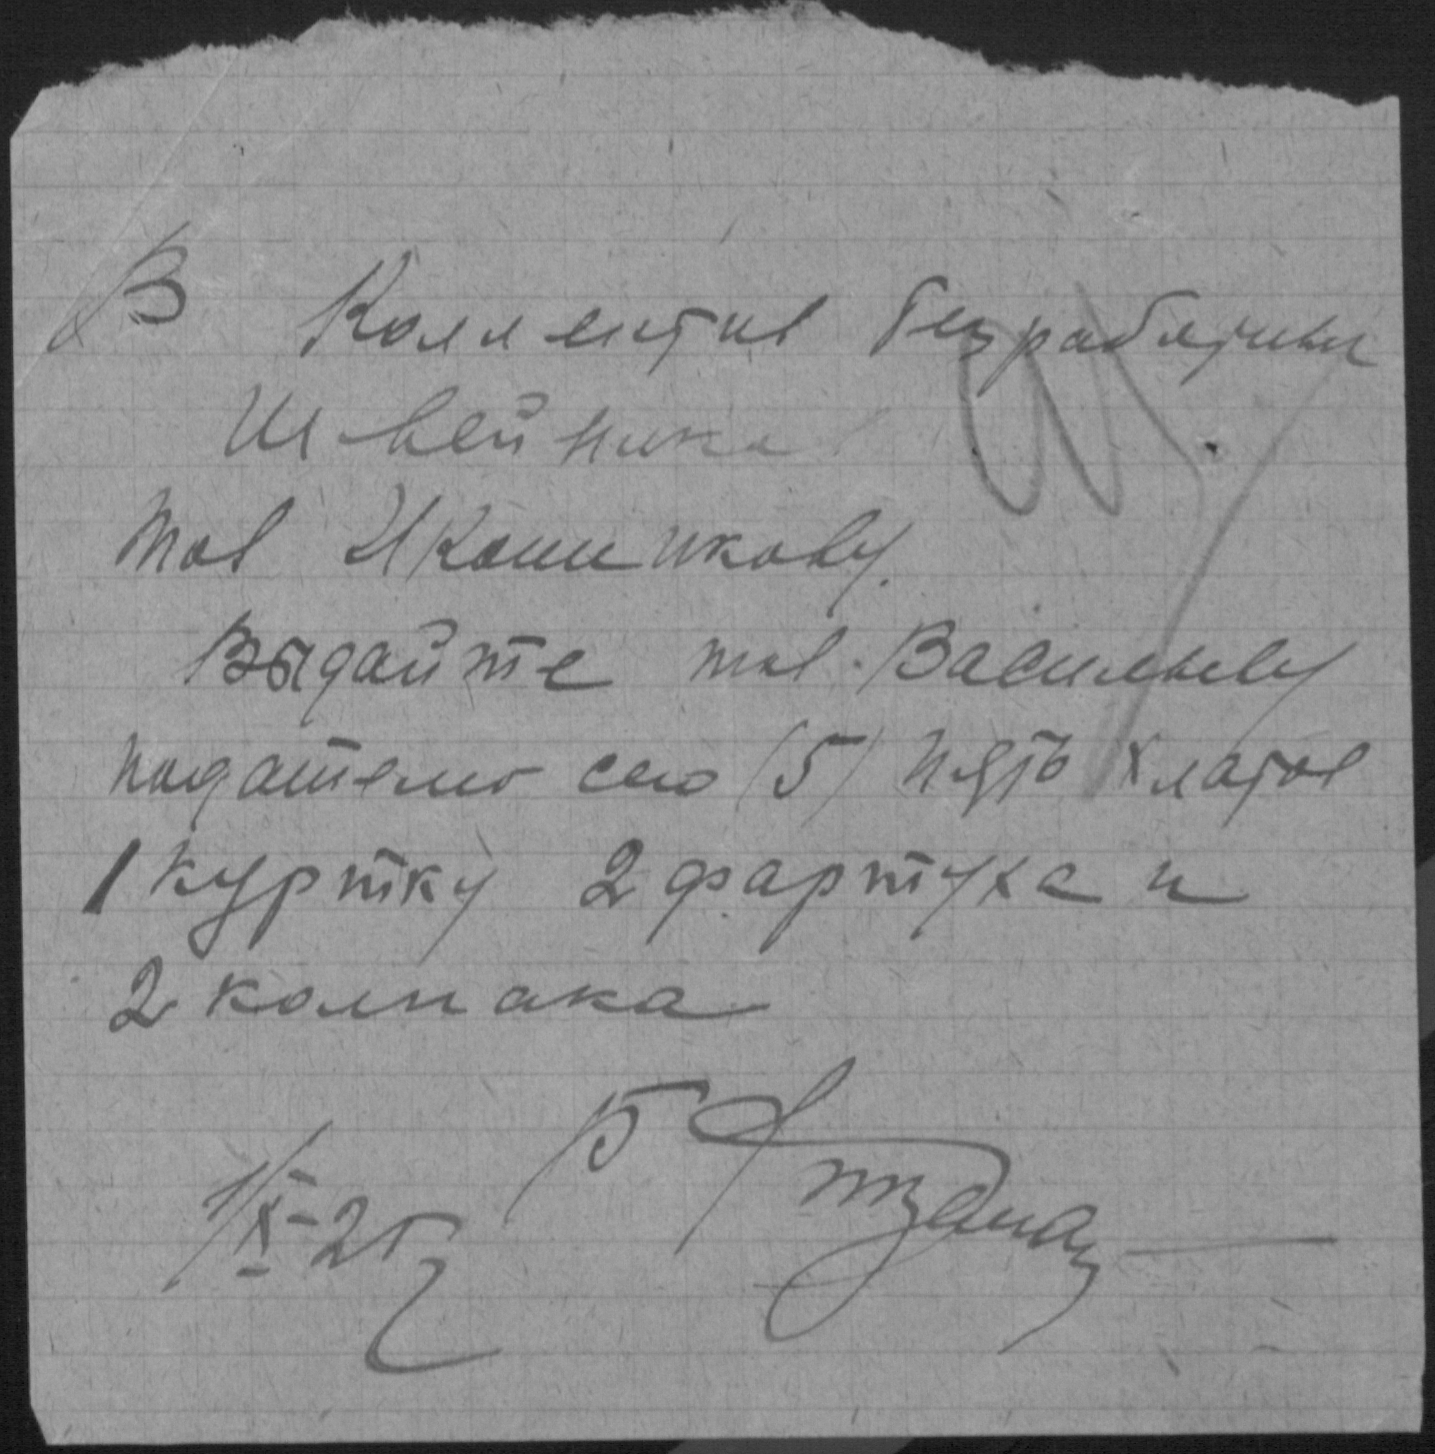 В Коллектив безработных
Швейника
Тов Иконникову.
Выдайте тов. Васильеву
подателю сего (5) пять халатов
1 куртку 2 фартука и
2 колпака
1/X-25 г